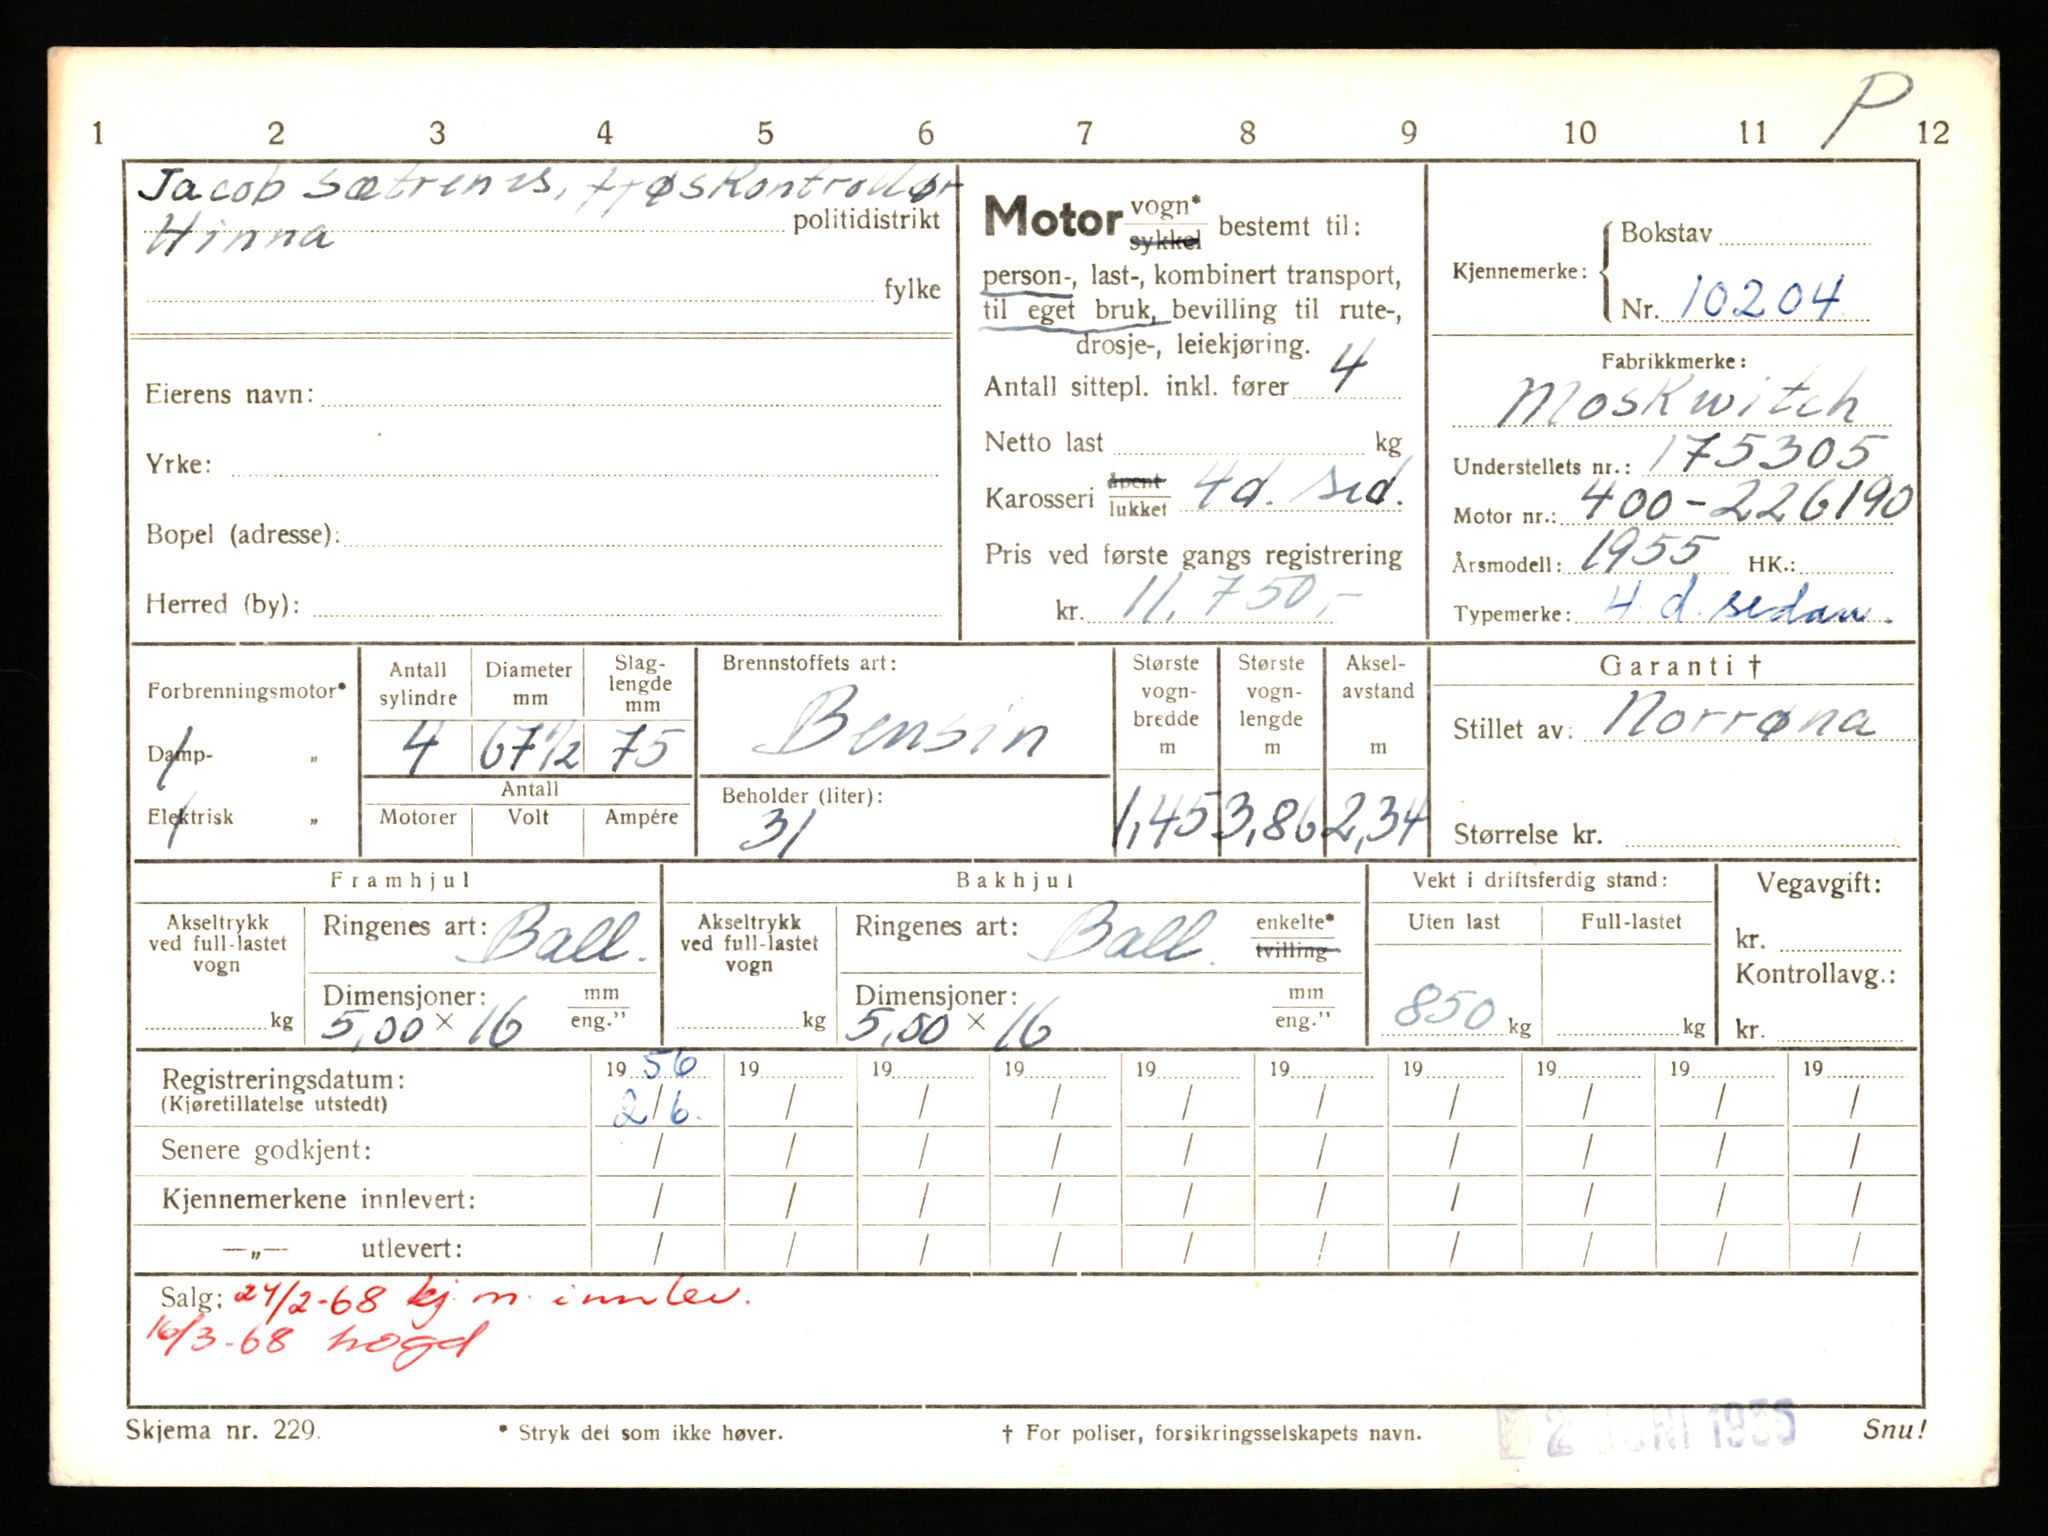 P
1 2 3 4 5 6 7 8 9 10 11 12
Jacob Sætrenes,
politidistrikt
Hinna
fylke
Eierens navn:
Yrke:
Bopel (adresse):
Herred (by):
Motor vogn* sykkel bestemt til:
person-, last-, kombinert transport,
til eget bruk, bevilling til rute-,
drosje-, leiekjøring.
Antall sittepl. inkl. fører 4
Netto last kg
Karosseri åpent lukket 4d. sed.
Pris ved første gangs registrering
kr. 11.750,-
Kjennemerke: Bokstav
Nr. 10204
Fabrikkmerke:
Moskwitch
Understellets nr.: 175305
Motor nr.: 400-226190
Årsmodell: 1955 HK.:
Typemerke: 4. d. sedan.
Forbrenningsmotor*
Damp- „
Elektrisk „
Antall sylindre
4
Diameter mm
67 1/2
Slag-lengde mm
75
Antall
Motorer Volt Ampére
Brennstoffets art:
Bensin
Beholder (liter):
31
Største vogn-bredde m
1,45
Største vogn-lengde m
3,86
Aksel-avstand m
2,34
Garanti †
Stillet av: Norrøna
Størrelse kr.
Framhjul
Akseltrykk
ved full-lastet
vogn
kg
Ringenes art: Ball.
Dimensjoner: mm
5,00 × 16 eng."
Bakhjul
Akseltrykk
ved full-lastet
vogn
kg
Ringenes art: Ball. enkelte*
tvilling
Dimensjoner: mm
5,00 × 16 eng."
Vekt i driftsferdig stand:
Uten last Full-lastet
850 kg kg
Vegavgift:
kr.
Kontrollavg.:
kr.
Registreringsdatum: 1956 19 19 19 19 19 19 19 19 19
(Kjøretillatelse utstedt) 2/6. / / / / / / / / /
Senere godkjent: / / / / / / / / / /
Kjennemerkene innlevert: / / / / / / / / / /
—„— utlevert: / / / / / / / / / /
Salg: 24/2-68 kj. m. innlev.
16/3-68 hogd
Skjema nr. 229. * Stryk det som ikke høver. † For poliser, forsikringsselskapets navn. Snu!